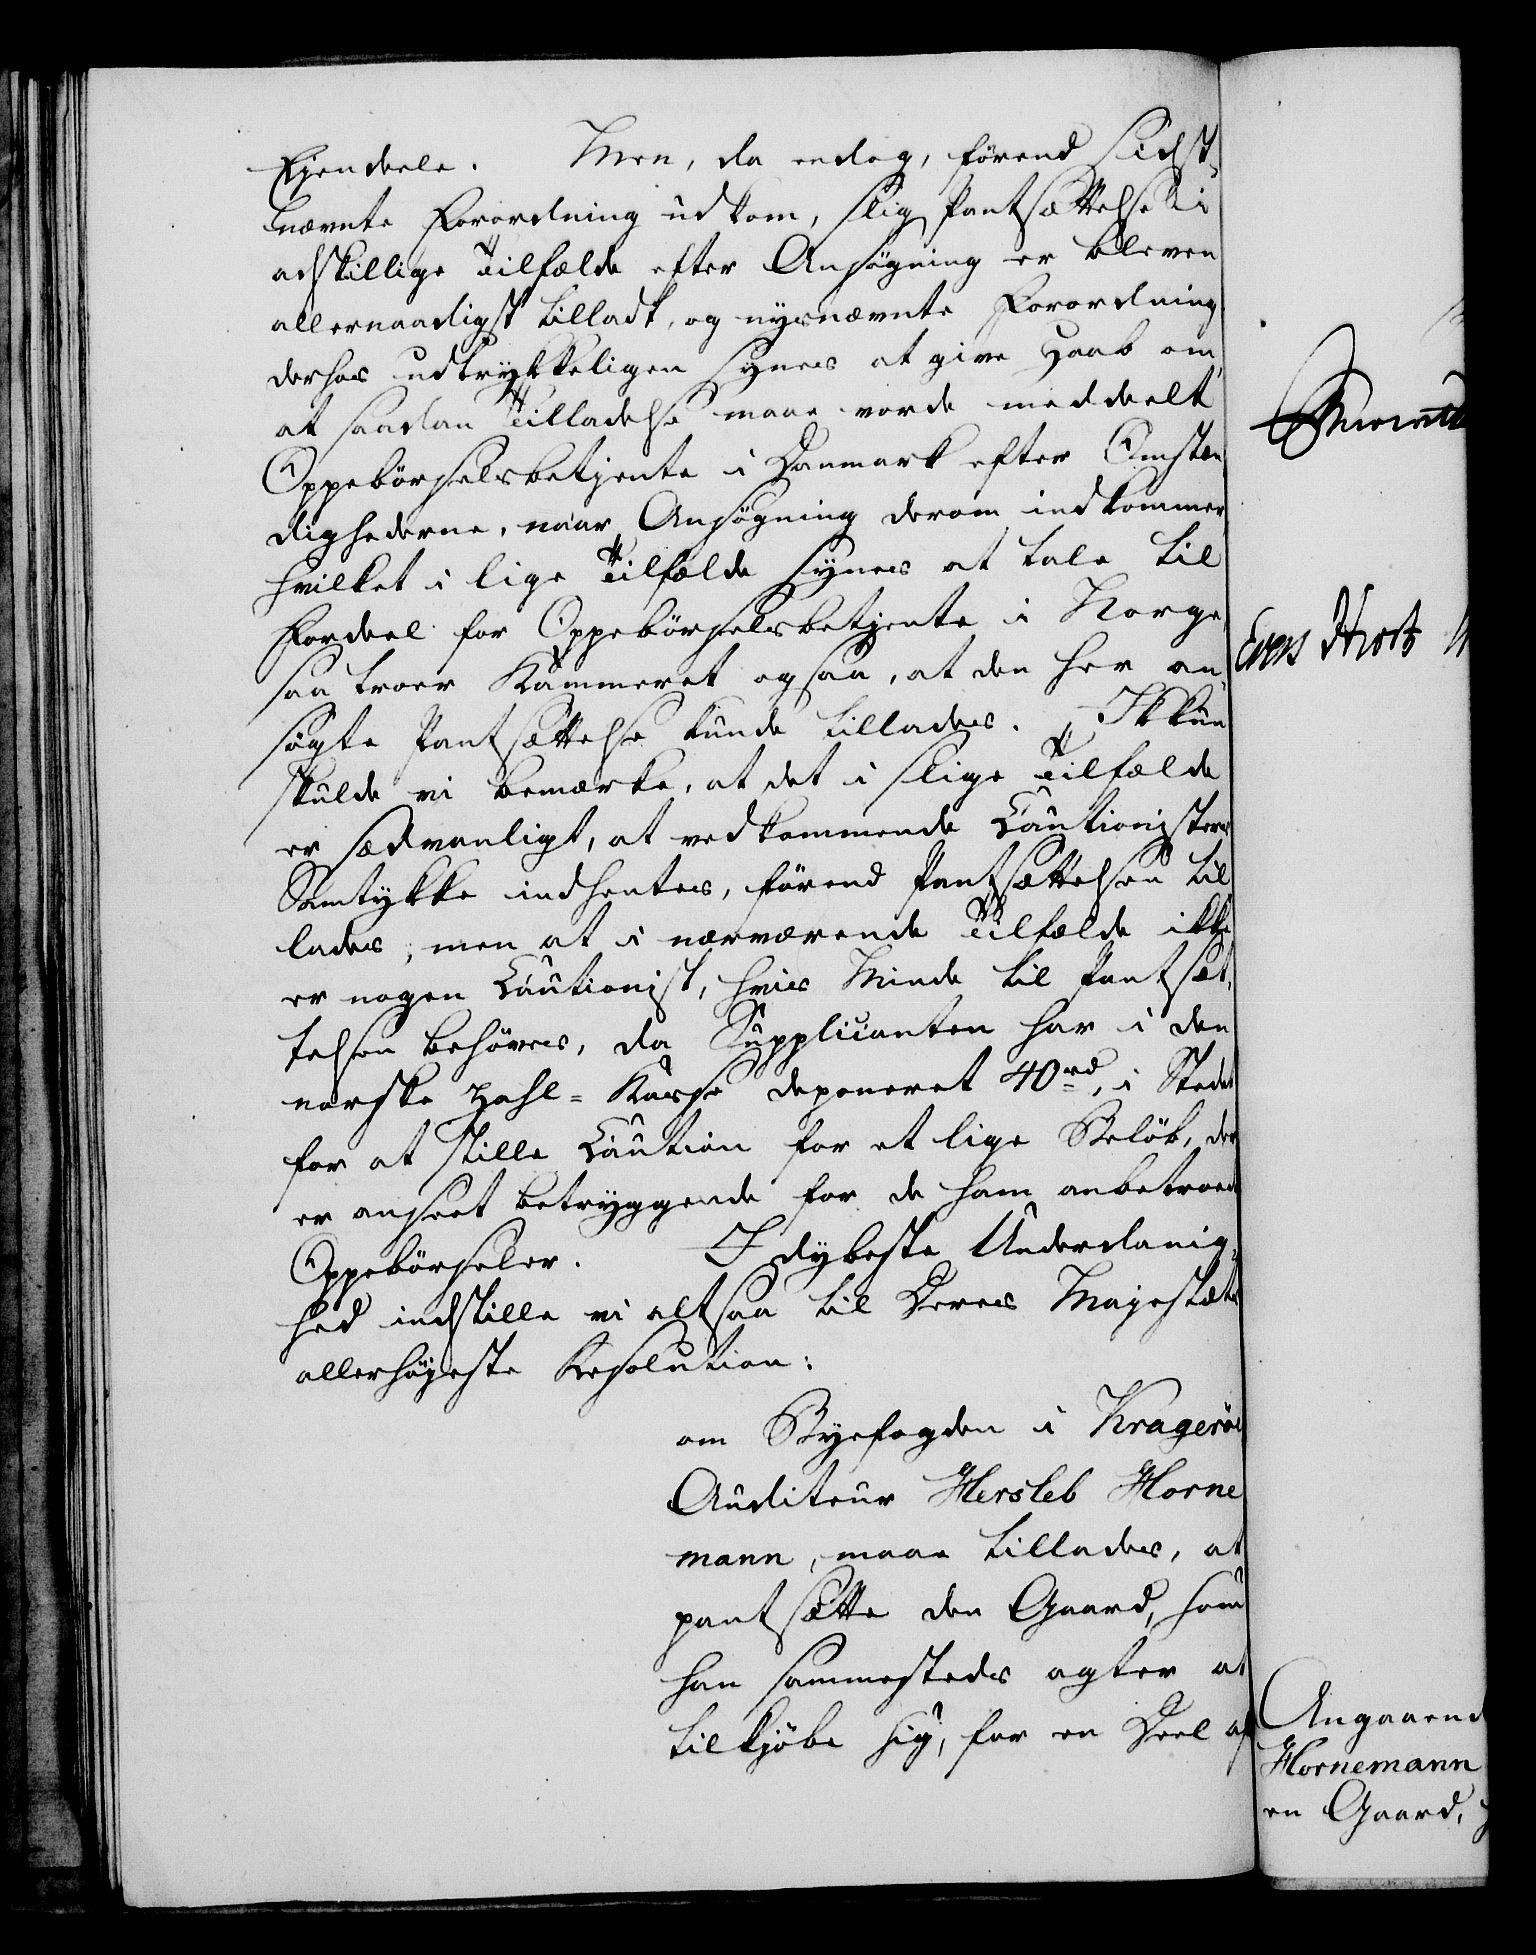 Ejendeele. Men, da endog, förend sidst-
nævnte Forordning udkom, slig Pantsættelse i
adskillige Tilfælde efter Ansøgning er bleven
allernaadigst tilladt, og nysnævnte Forordning
derhos udtrykkeligen synes at give Haab om,
at saadan Tilladelse maae vorde meddeelt
Oppebörselsbetjente i Danmark efter Omstæn
dighederne, naar Ansøgning derom indkommer
hvilket i lige Tilfælde synes at tale til
Fordeel for Oppebörselsbetjente i Norge,
saa troer Kammeret ogsaa, at den her an-
søgte Pantsættelse kunde tillades. Ikkun
skulde vi bemærke, at det i slige Tilfælde
er sædvanligt, at vedkommende Cautionisters
Samtykke indhentes, förend Pantsættelsen til
lades; men at i nærværende Tilfælde ikke
er nogen Cautionist, hvis Minde til Pantsæt-
telsen behöves, da Supplicanten har i den
norske Zahl-Kasse deponeret 40 rd, i Stedet
for at stille Caution for et lige Belöb, der
er anseet betryggende for de ham anbetroede
Oppebörseler. I dybeste Underdanig-
hed indstille vi altsaa til Deres Majestæts
allerhöjeste Resolution:
om Byefogden i Krageröe
Auditeur Hersleb Horne
mann, maae tillades, at
pantsætte den Gaard, som
han sammesteds agter at
tilkjöbe sig, for en Deel af
Angaaend
Hornemann
en Gaard,